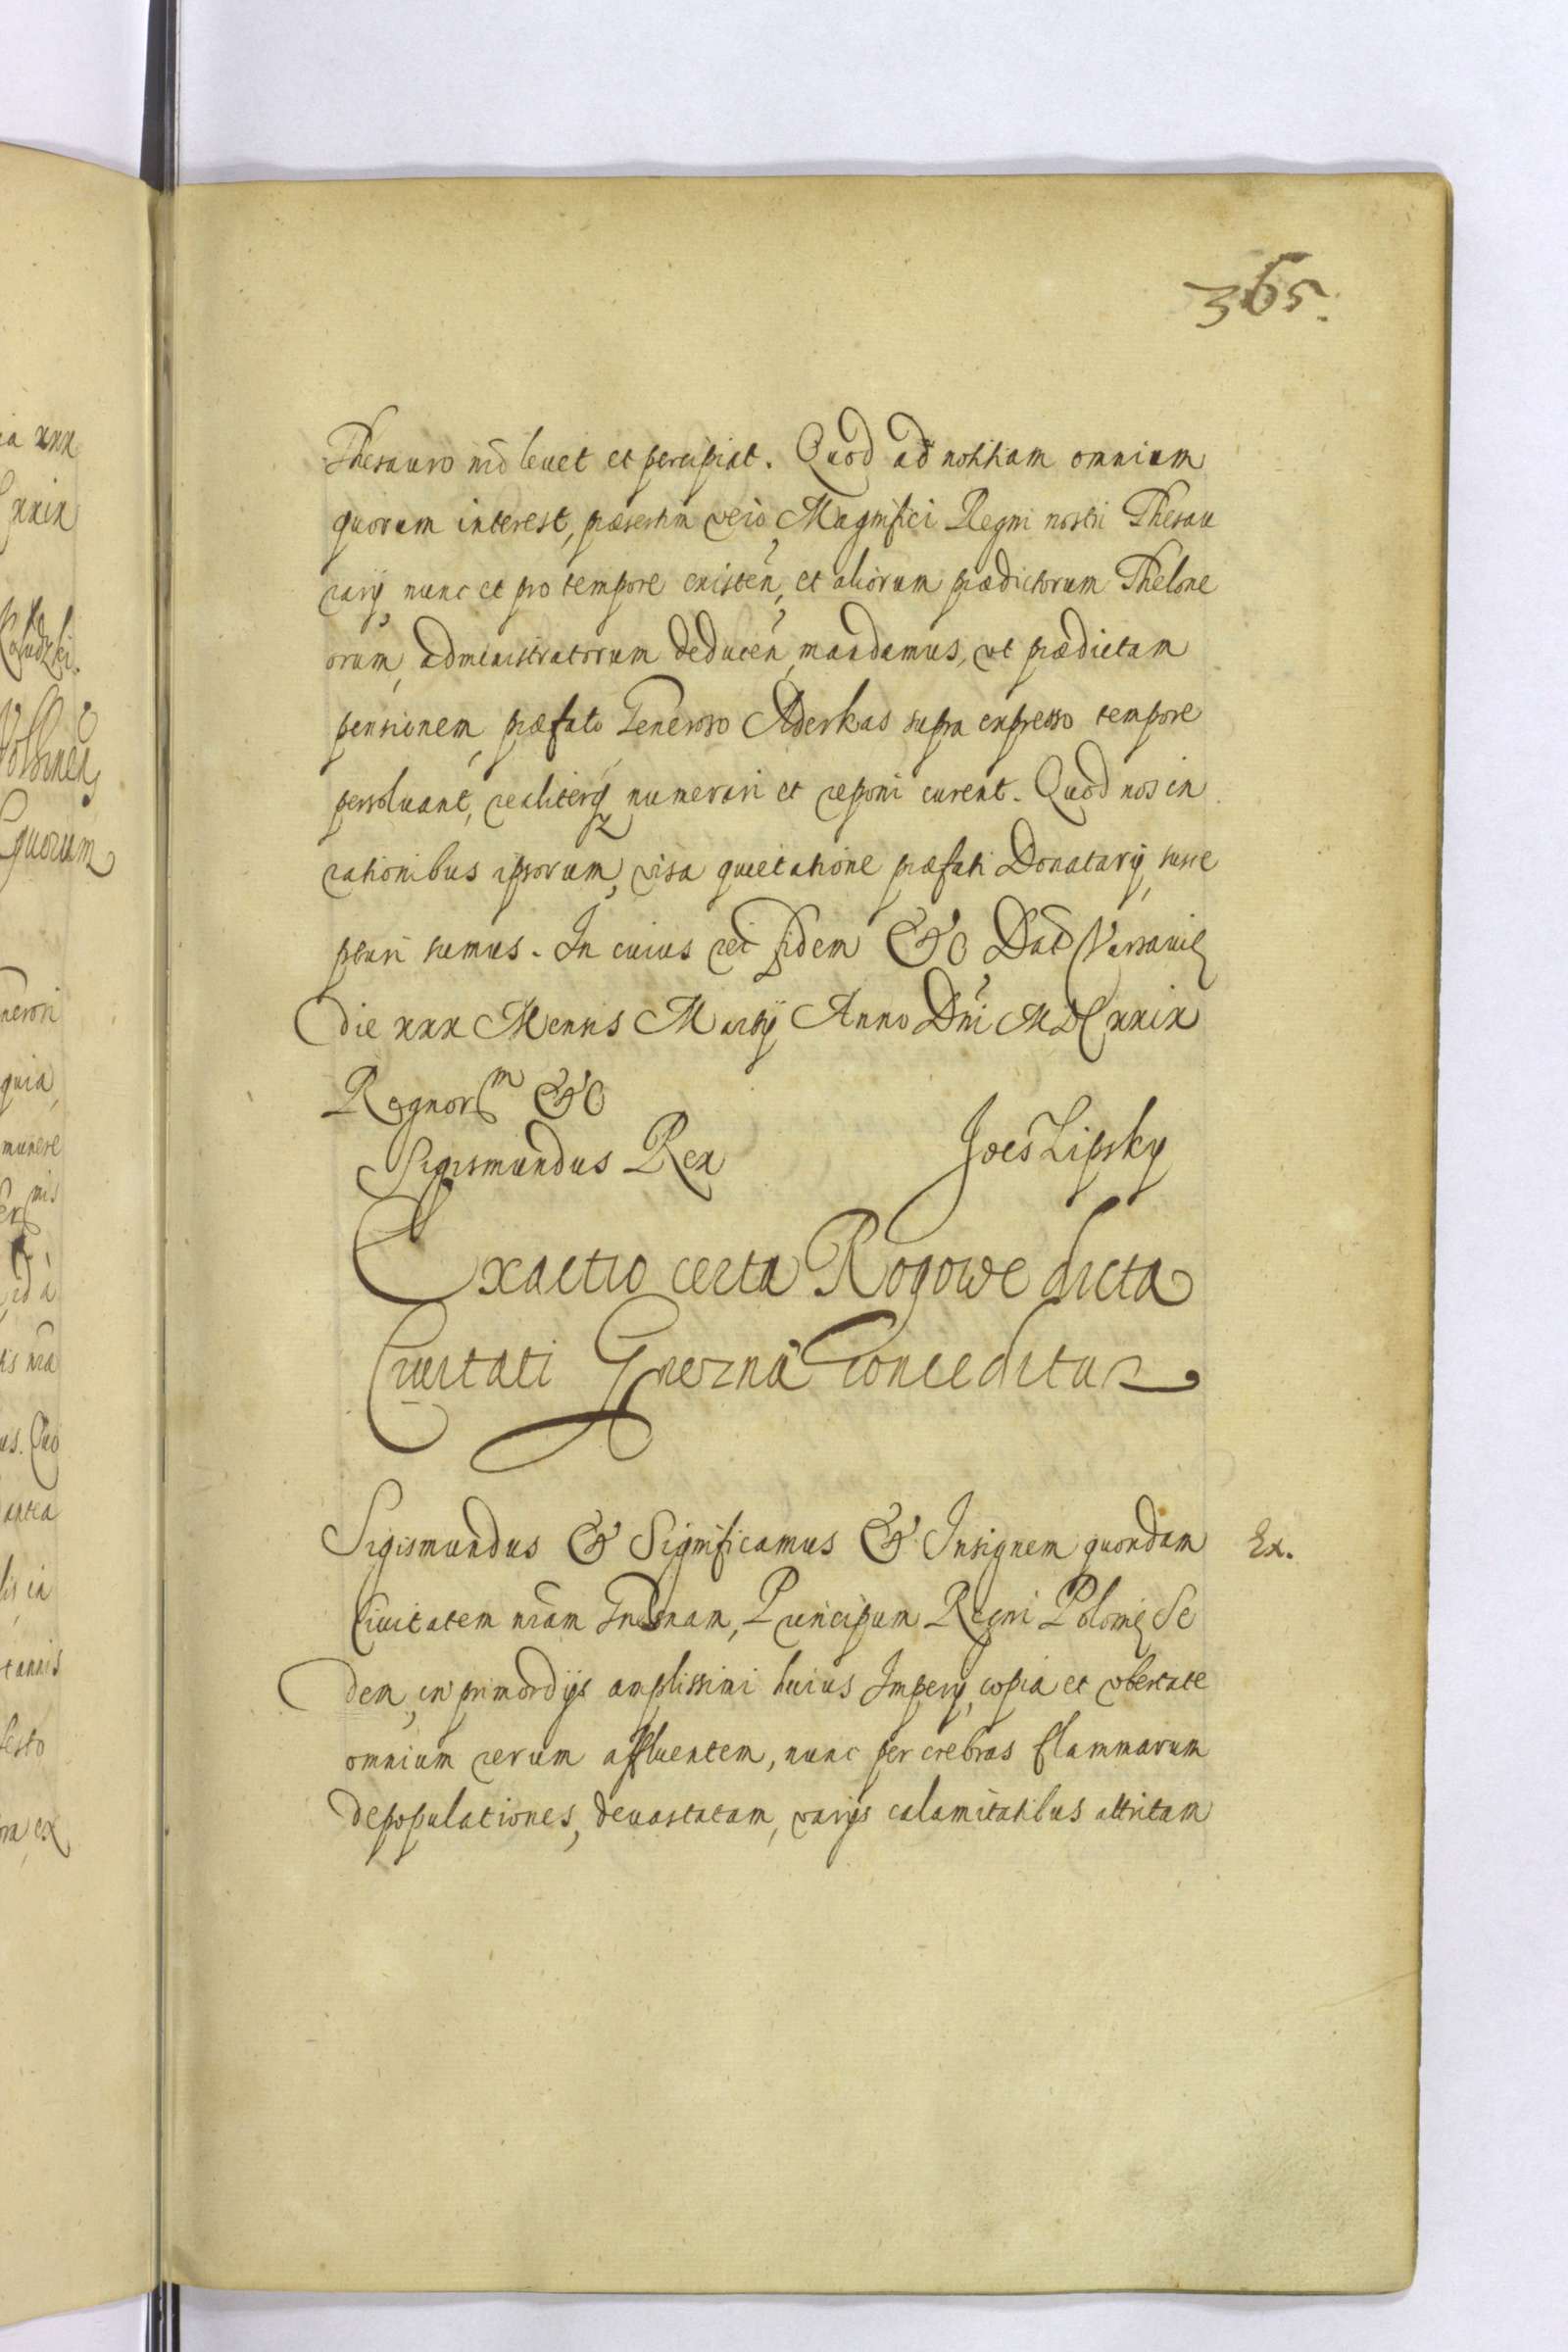 365.
Thesauro nrõ leuet et percipiat. Quod ad notitiam omnium
quorum interest, præsertim vero, Magnifici Regni nostri Thesau
rarij nunc et pro tempore existeñ, et aliorum prædictorum Thelone
orum, administratorum deduceñ, mandamus, vt prædictam
pensionem, præfato Generoso Aderkas supra expresso tempore
persoluant, realiterq numerari et reponi curent. Quod nos in
rationibus ipsorum, visa quietatione præfati Donatarij, susce
pturi sumus. In cuius rei fidem &c Dat Varsauię
die xxx Mensis Martij Anno Dni MDCxxix
Regnorm &c
Sigismundus Rex
Joes Lipsky
Exactio certa Rogowe dicta
Ciuitati Gnezna conceditur
Sigismundus & Significamus & Insignem quondam
Ex.
Ciuitatem nram Gnesnam, Principum Regni Polonię Se
dem, in primordijs amplissimi huius Imperij, copia et vbertate
omnium rerum affluentem, nunc per crebras flammarum
depopulationes, deuastatam, varijs calamitatibus attritam